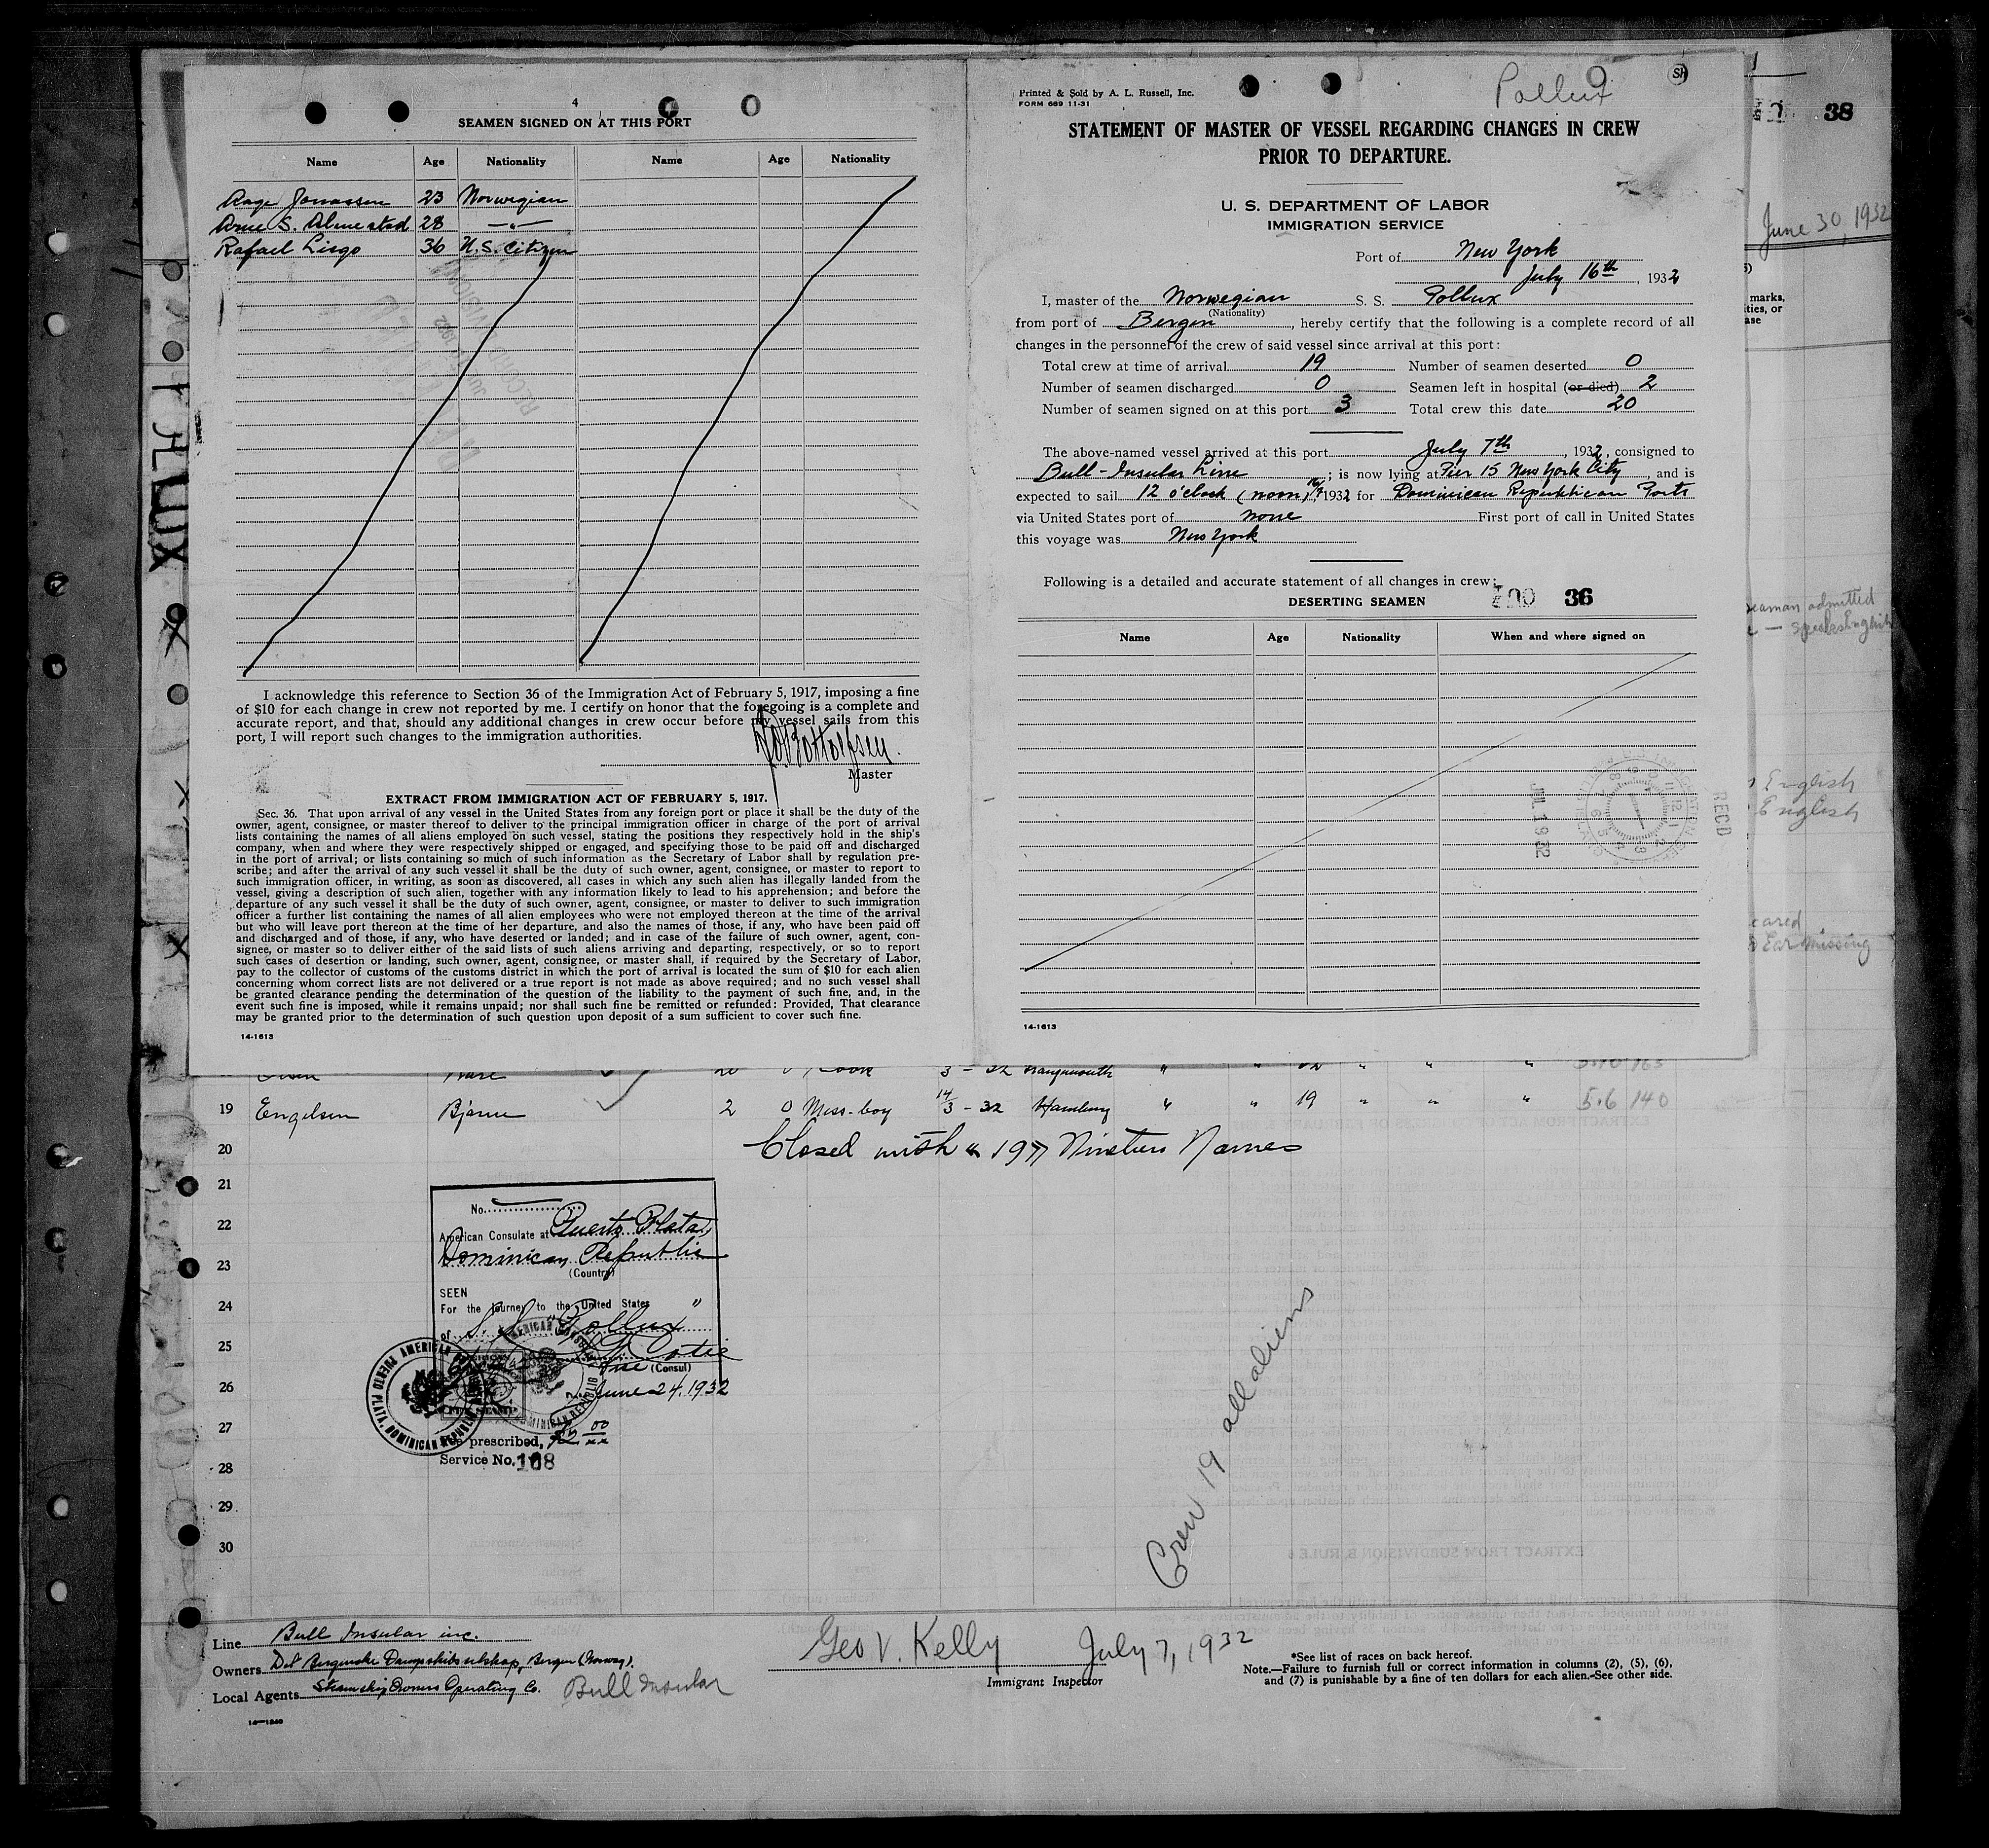 4
SEAMEN SIGNED ON AT THIS PORT
Name Age Nationality Name Age Nationality
Aage Jonassen 23 Norwegian
Arne S. Almestad 28 —"—
Rafael Lisgo 36 U.S. Citizen
I acknowledge this reference to Section 36 of the Immigration Act of February 5, 1917, imposing a fine
of $10 for each change in crew not reported by me. I certify on honor that the foregoing is a complete and
accurate report, and that, should any additional changes in crew occur before my vessel sails from this
port, I will report such changes to the immigration authorities.
Master
EXTRACT FROM IMMIGRATION ACT OF FEBRUARY 5, 1917.
Sec. 36. That upon arrival of any vessel in the United States from any foreign port or place it shall be the duty of the
owner, agent, consignee, or master thereof to deliver to the principal immigration officer in charge of the port of arrival
lists containing the names of all aliens employed on such vessel, stating the positions they respectively hold in the ship's
company, when and where they were respectively shipped or engaged, and specifying those to be paid off and discharged
in the port of arrival; or lists containing so much of such information as the Secretary of Labor shall by regulation pre-
scribe; and after the arrival of any such vessel it shall be the duty of such owner, agent, consignee, or master to report to
such immigration officer, in writing, as soon as discovered, all cases in which any such alien has illegally landed from the
vessel, giving a description of such alien, together with any information likely to lead to his apprehension; and before the
departure of any such vessel it shall be the duty of such owner, agent, consignee, or master to deliver to such immigration
officer a further list containing the names of all alien employees who were not employed thereon at the time of the arrival
but who will leave port thereon at the time of her departure, and also the names of those, if any, who have been paid off
and discharged and of those, if any, who have deserted or landed; and in case of the failure of such owner, agent, con-
signee, or master so to deliver either of the said lists of such aliens arriving and departing, respectively, or so to report
such cases of desertion or landing, such owner, agent, consignee, or master shall, if required by the Secretary of Labor,
pay to the collector of customs of the customs district in which the port of arrival is located the sum of $10 for each alien
concerning whom correct lists are not delivered or a true report is not made as above required; and no such vessel shall
be granted clearance pending the determination of the question of the liability to the payment of such fine, and, in the
event such fine is imposed, while it remains unpaid; nor shall such fine be remitted or refunded: Provided, That clearance
may be granted prior to the determination of such question upon deposit of a sum sufficient to cover such fine.
14-1613
Printed & Sold by A. L. Russell, Inc.
FORM 689 11-31
Pollux
STATEMENT OF MASTER OF VESSEL REGARDING CHANGES IN CREW
PRIOR TO DEPARTURE.
U. S. DEPARTMENT OF LABOR
IMMIGRATION SERVICE
Port of New York
July 16th, 1932
I, master of the Norwegian S. S. Pollux
(Nationality)
from port of Bergen, hereby certify that the following is a complete record of all
changes in the personnel of the crew of said vessel since arrival at this port:
Total crew at time of arrival 19 Number of seamen deserted 0
Number of seamen discharged 0 Seamen left in hospital (or died) 2
Number of seamen signed on at this port 3 Total crew this date 20
The above-named vessel arrived at this port July 7th, 1932, consigned to
Bull-Insular Line; is now lying at Pier 15 New York City, and is
expected to sail 12 o'clock (noon) 1932 for Dominican Republican Ports
via United States port of none First port of call in United States
this voyage was New York
Following is a detailed and accurate statement of all changes in crew:
DESERTING SEAMEN 36
Name Age Nationality When and where signed on
RECD
JUL 19 32
14-1613
38
June 30, 1932
marks,
ties, or
ase
seaman admitted
English
English
Ear missing
POLLUX
19 Engelsen Bjarne 2 0 Mess-boy 14/3 - 32 Hamburg " " 19 " " " 5.6 140
20 Closed with "19" Nineteen Names
21
22
23
24
25
26
27
28
29
30
No.
American Consulate at Puerto Plata,
Dominican Republic
(Country)
SEEN
For the journey to the United States
of S. S. "Pollux"
Vice (Consul)
June 24, 1932
Fee prescribed,
Service No. 168
AMERICAN
PUERTO PLATA, DOMINICAN REPUBLIC
Crew 19 all aliens
Line Bull Insular inc.
Owners Det Bergenske Dampskibsselskap, Bergen (Norway).
Local Agents Steamship Owners Operating Co. Bull Insular
14—1240
Geo V. Kelly July 7, 1932
Immigrant Inspector
*See list of races on back hereof.
Note.—Failure to furnish full or correct information in columns (2), (5), (6),
and (7) is punishable by a fine of ten dollars for each alien.—See other side.